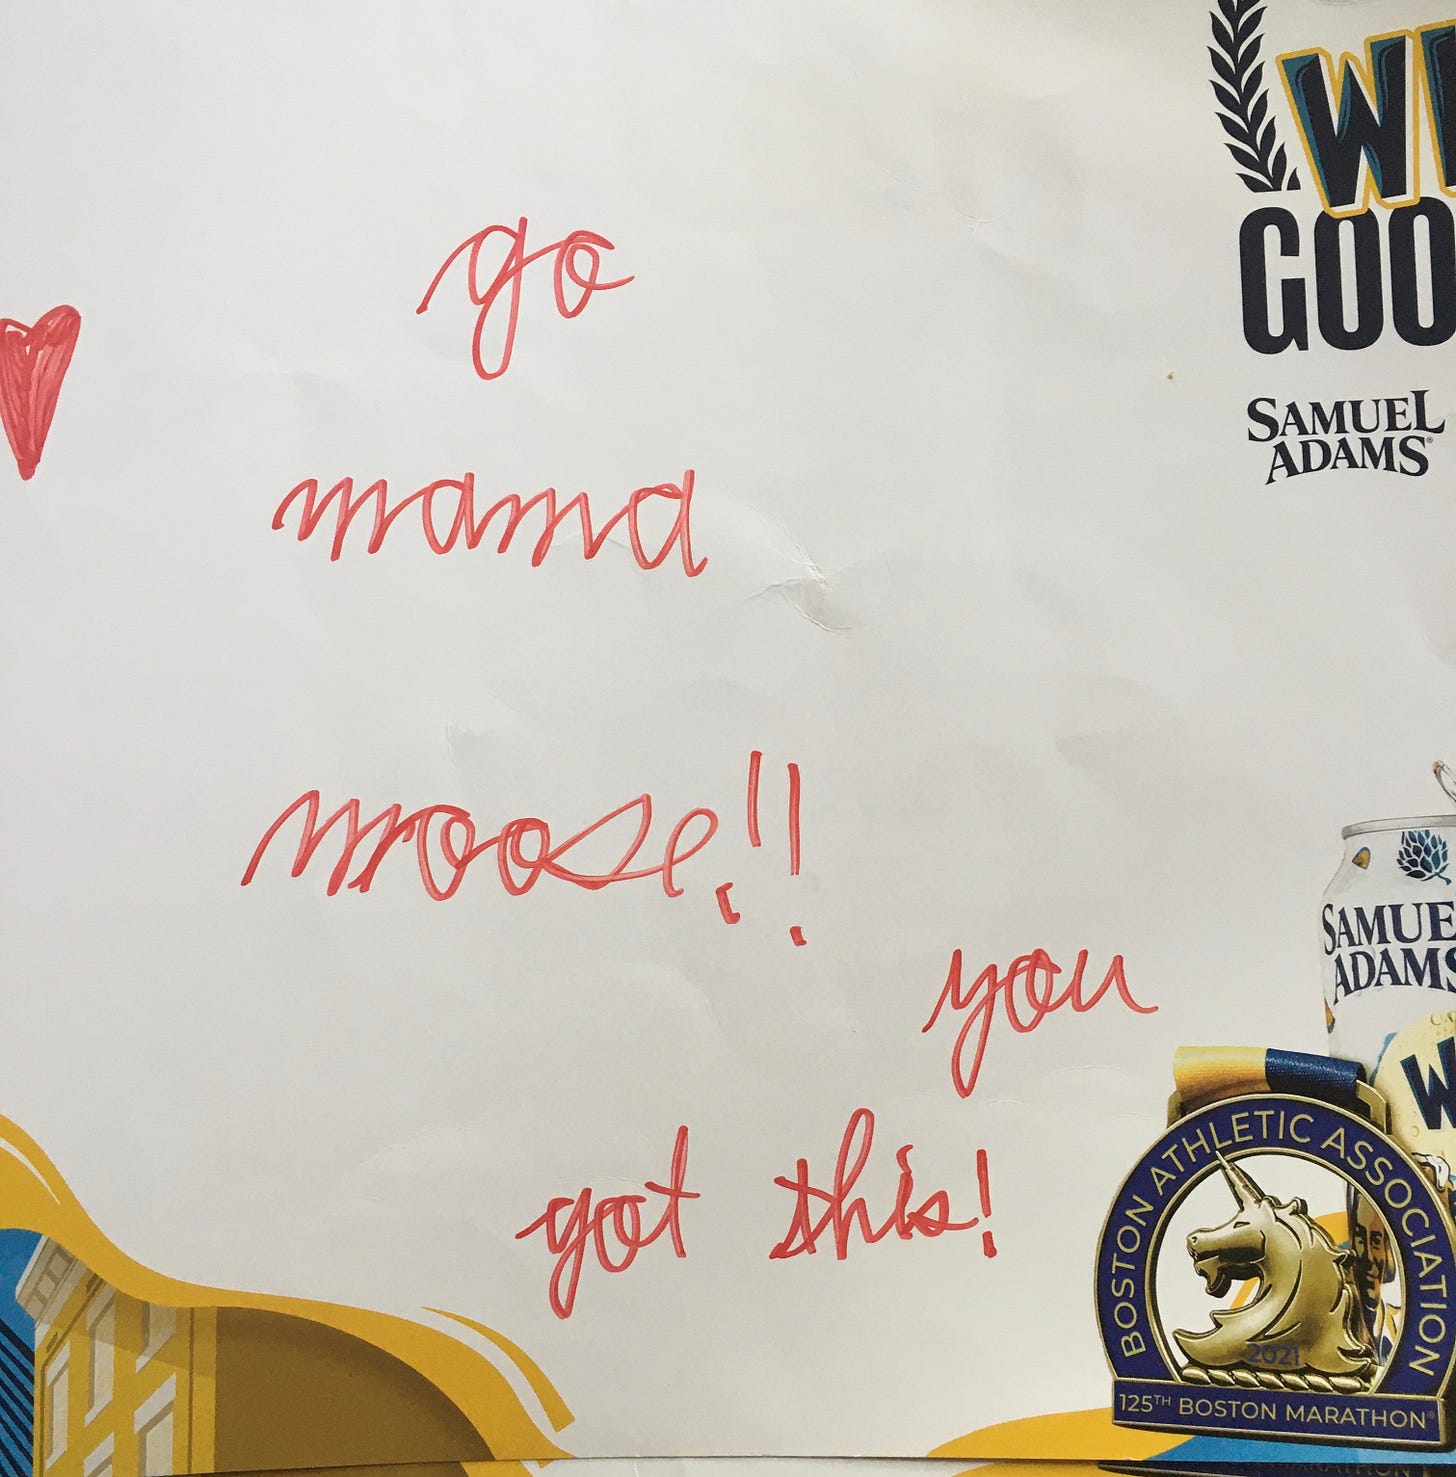 WI
GOO
SAMUEL
ADAMS®
go
mama
moose!!
you
got this!
SAMUE
ADAMS
W
BOSTON ATHLETIC ASSOCIATION
2021
125TH BOSTON MARATHON®